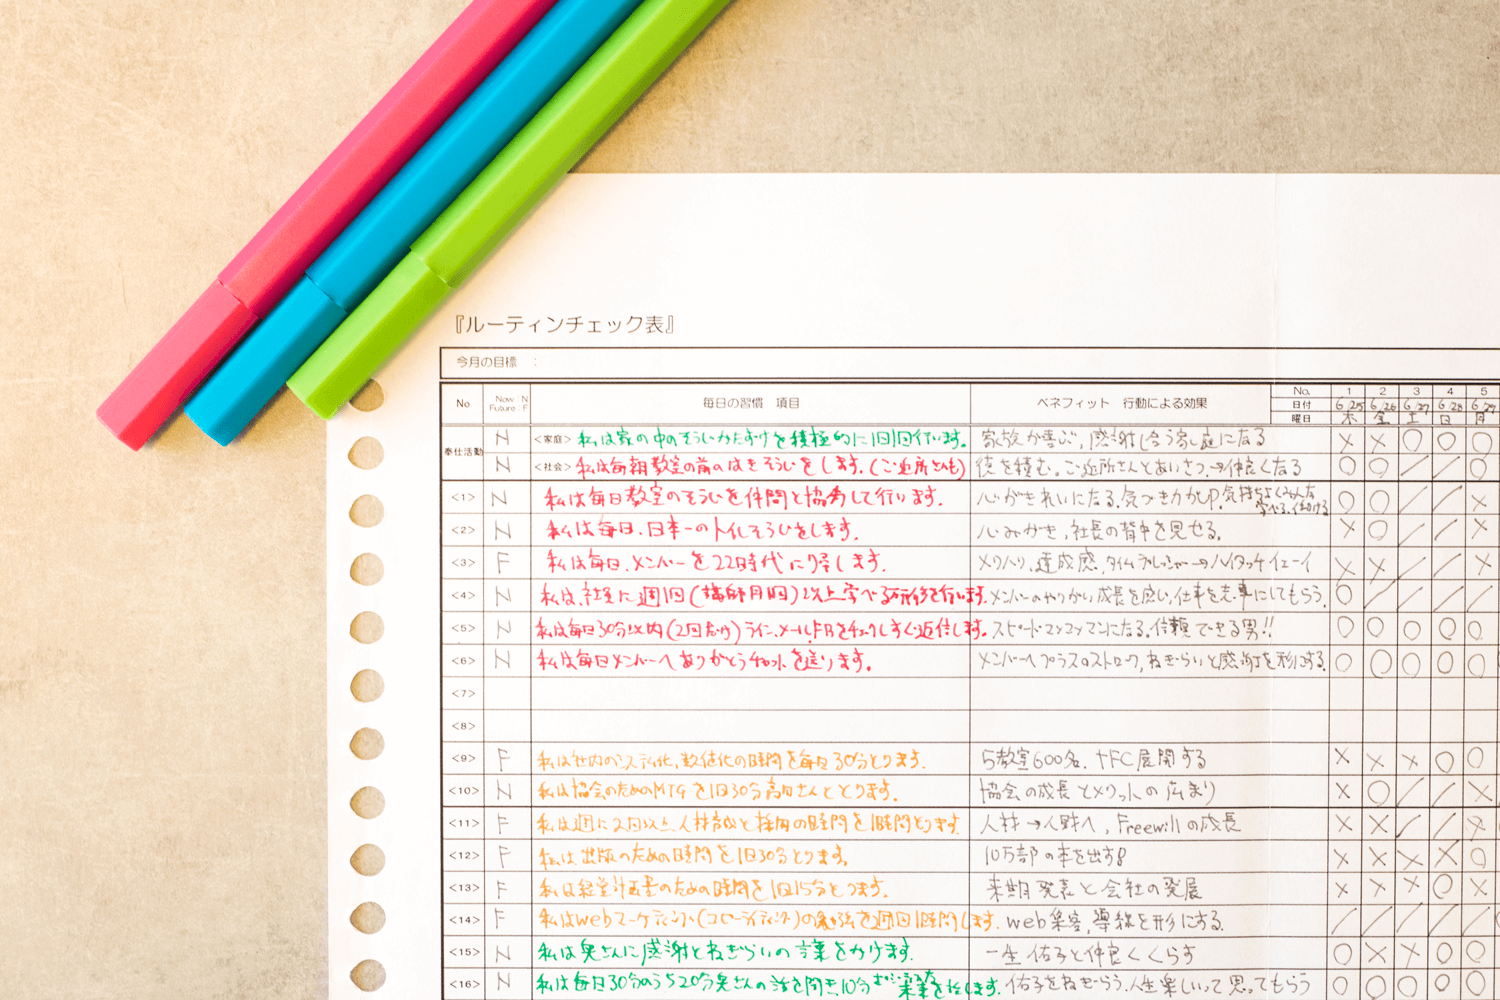 『ルーティンチェック表』
今月の目標 :
No Now : N Future : F 毎日の習慣 項目 ベネフィット 行動による効果 No. 1 2 3 4 5
日付 6/25 6/26 6/27 6/28 6/29
曜日 木 金 土 日 月
奉仕活動 N <家庭> 私は家の中のそうじかたずけを積極的に1日1回行います。 家族が喜ぶ,感謝し合う家庭になる × × ○ ○ ○
N <社会> 私は毎朝教室の前のはきそうじをします。(ご近所さんも) 徳を積む。ご近所さんとあいさつ→仲良くなる ○ ○ / / ○
<1> N 私は毎日教室のそうじを仲間と協力して行います。 心がきれいになる.気づき力UP.気持ちよくみんな ○ ○ / / ×
<2> N 私は毎日、日本一のトイレそうじをします。 心みがき,社長の背中を見せる。 × ○ / / ×
<3> F 私は毎日、メンバーを22時代に帰します。 メリハリ,達成感,タイムプレッシャー→ハイタッチイェーイ × × / / ×
<4> N 私は、社員に週1回(講師月1回)以上学べる研修を行います。 メンバーのやりがい,成長を感じ,仕事を志事にしてもらう。 ○ / / / /
<5> N 私は毎日30分以内(2回だけ)ライン、メール、FBをチェックしすぐ返信します。 スピードマンコマンになる.信頼できる男!! ○ ○ ○ ○ ○
<6> N 私は毎日メンバーへありがとうチャットを送ります。 メンバーへプラスのストローク,ねぎらいと感謝を形にする。 ○ ○ ○ ○ ○
<7>
<8>
<9> F 私は社内のシステム化,数値化の時間を毎日30分とります。 5教室600名. FC展開する × × × ○ ○
<10> N 私は協会のためのMTGを1日30分高田さんととります。 協会の成長とメリットの広まり × ○ / / ×
<11> F 私は週に2回以上人材育成と採用の時間を1時間とります。 人材→人財へ,Freewillの成長 × × / / ×
<12> F 私は出版のための時間を1日30分とります。 10万部の本を出す! × × × × ○
<13> F 私は経営計画書のための時間を1日15分とります。 来期発表と会社の発展 × × × ○ ×
<14> F 私はwebマーケティング(コピーライティング)の勉強を週1回1時間します。 web集客,導線を形にする。 / / / / /
<15> N 私は奥さんに感謝とねぎらいの言葉をかけます。 一生佑子と仲良くくらす ○ × × ○ ○
<16> N 私は毎日30分のうち20分奥さんの話を聞き10分 未来を話します。 佑子をねぎらう.人生楽しいって思ってもらう ○ ○ ○ ○ ○